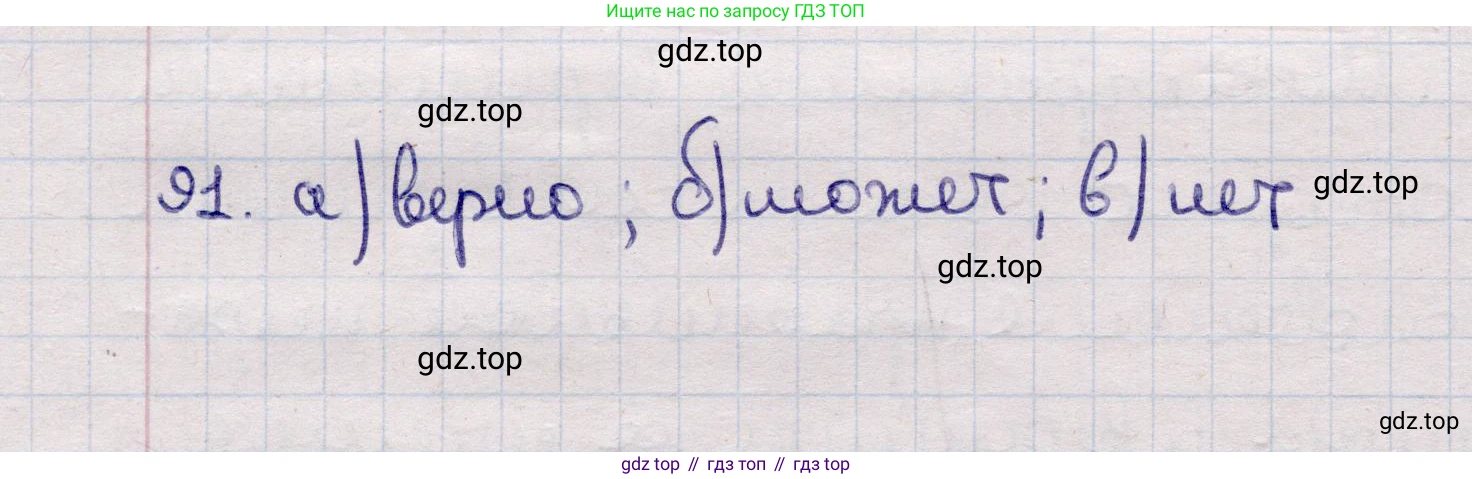 Ищите нас по запросу ГДЗ ТОП
gdz.top
gdz.top
91. а) верно; б) может; в) нет
gdz.top
gdz.top
gdz.top
gdz.top
gdz top // гдз топ // гдз top